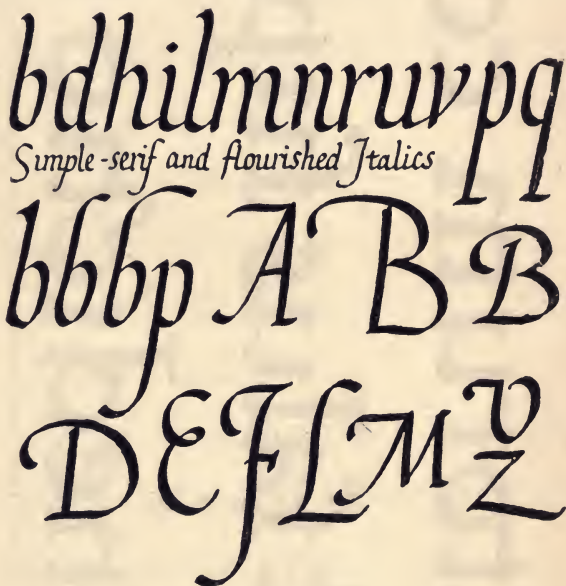 bdhilmnruvpq
Simple-serif and flourished Italics
bbbpABB
DEFLMV
Z